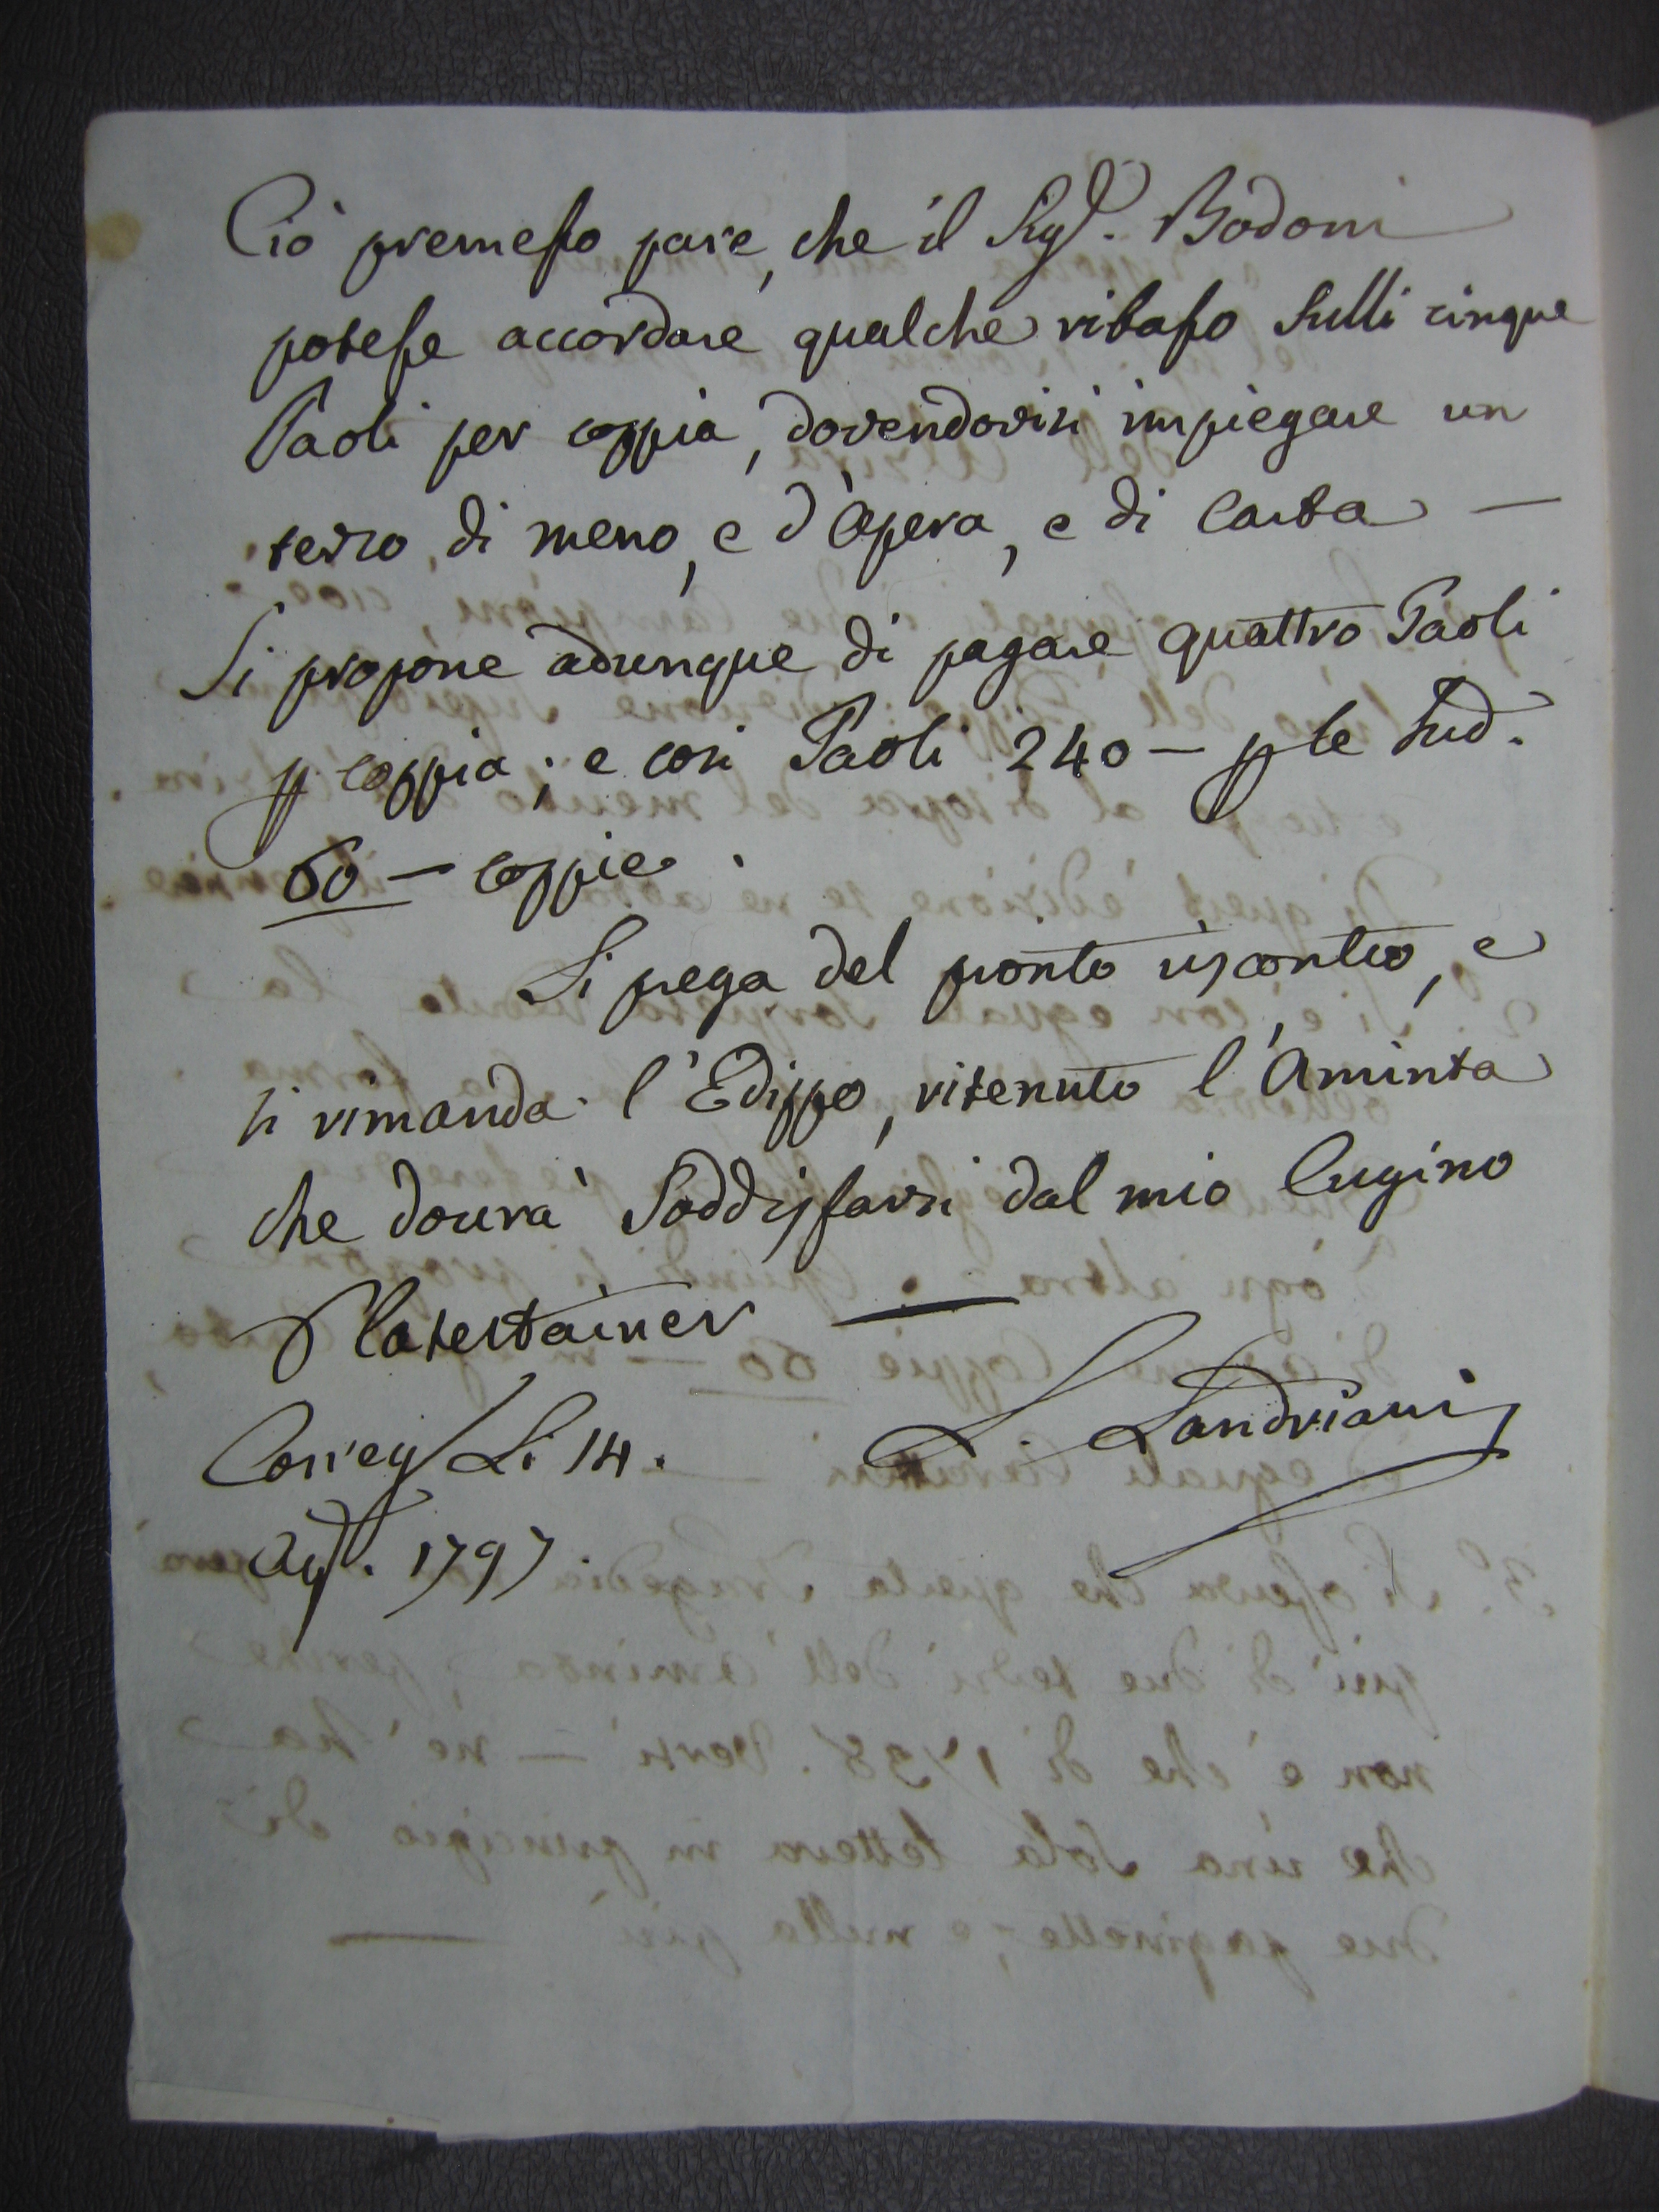 Ciò premesso pare, che il Sigr. Bodoni
potesse accordare qualche ribasso sulli cinque
Paoli per coppia, dovendovisi impiegare un
terzo di meno, e d'Opera, e di Carta —
Si propone adunque di pagare quattro Paoli
p coppia; e così Paoli 240 — p le sud.
60 — coppie.
Si prega del pronto riscontro, e
si rimanda l'Edippo, ritenuto l'Aminta
che dourà soddisfarsi dal mio Cugino
Platestainer —
Correg. Li 14.
L. Landriani
Agt. 1797.